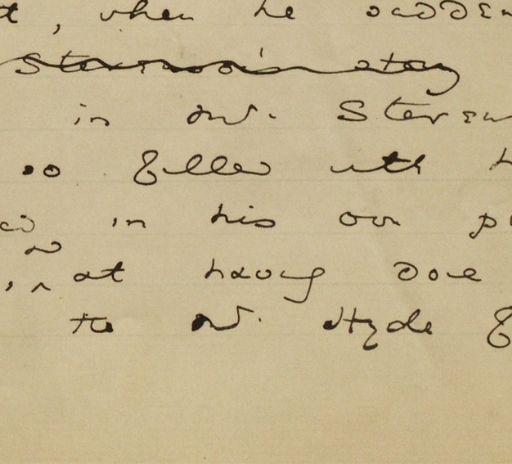 , when he sudden
Stevenson's story
in Mr. Steven
so filled with h
in his own p
, at having done
the Mr. Hyde